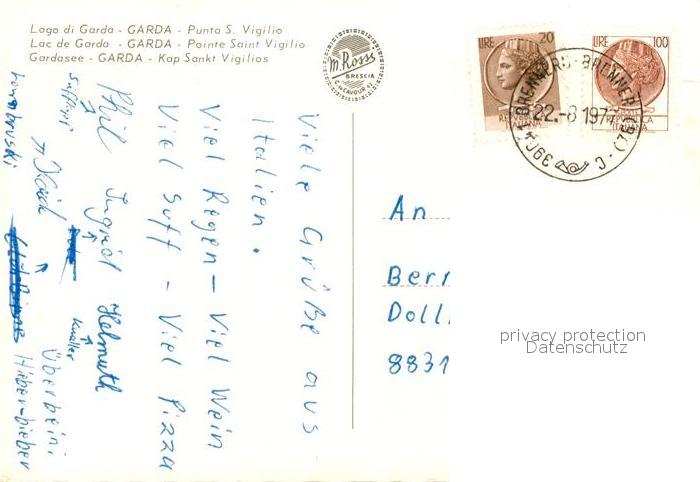 Lago di Garda - GARDA - Punta S. Vigilio
Lac de Garda - GARDA - Pointe Saint Vigilio
Gardasee - GARDA - Kap Sankt Vigilios
M. Rossi
BRESCIA
C. CAVOUR 42
LIRE 20
LIRE 100
REPUBBLICA
ITALIANA
BRENNERO-BRENNER
22.-8 197
39041
Viele Grüße aus
Italien.
Viel Regen - Viel Wein
Viel Suff - Viel Pizza
Phil Ingrid Helmuth
Suffzgi
Knaller
Überbeini
Hieber-bieber
An
Berr
Doll
8831
privacy protection
Datenschutz